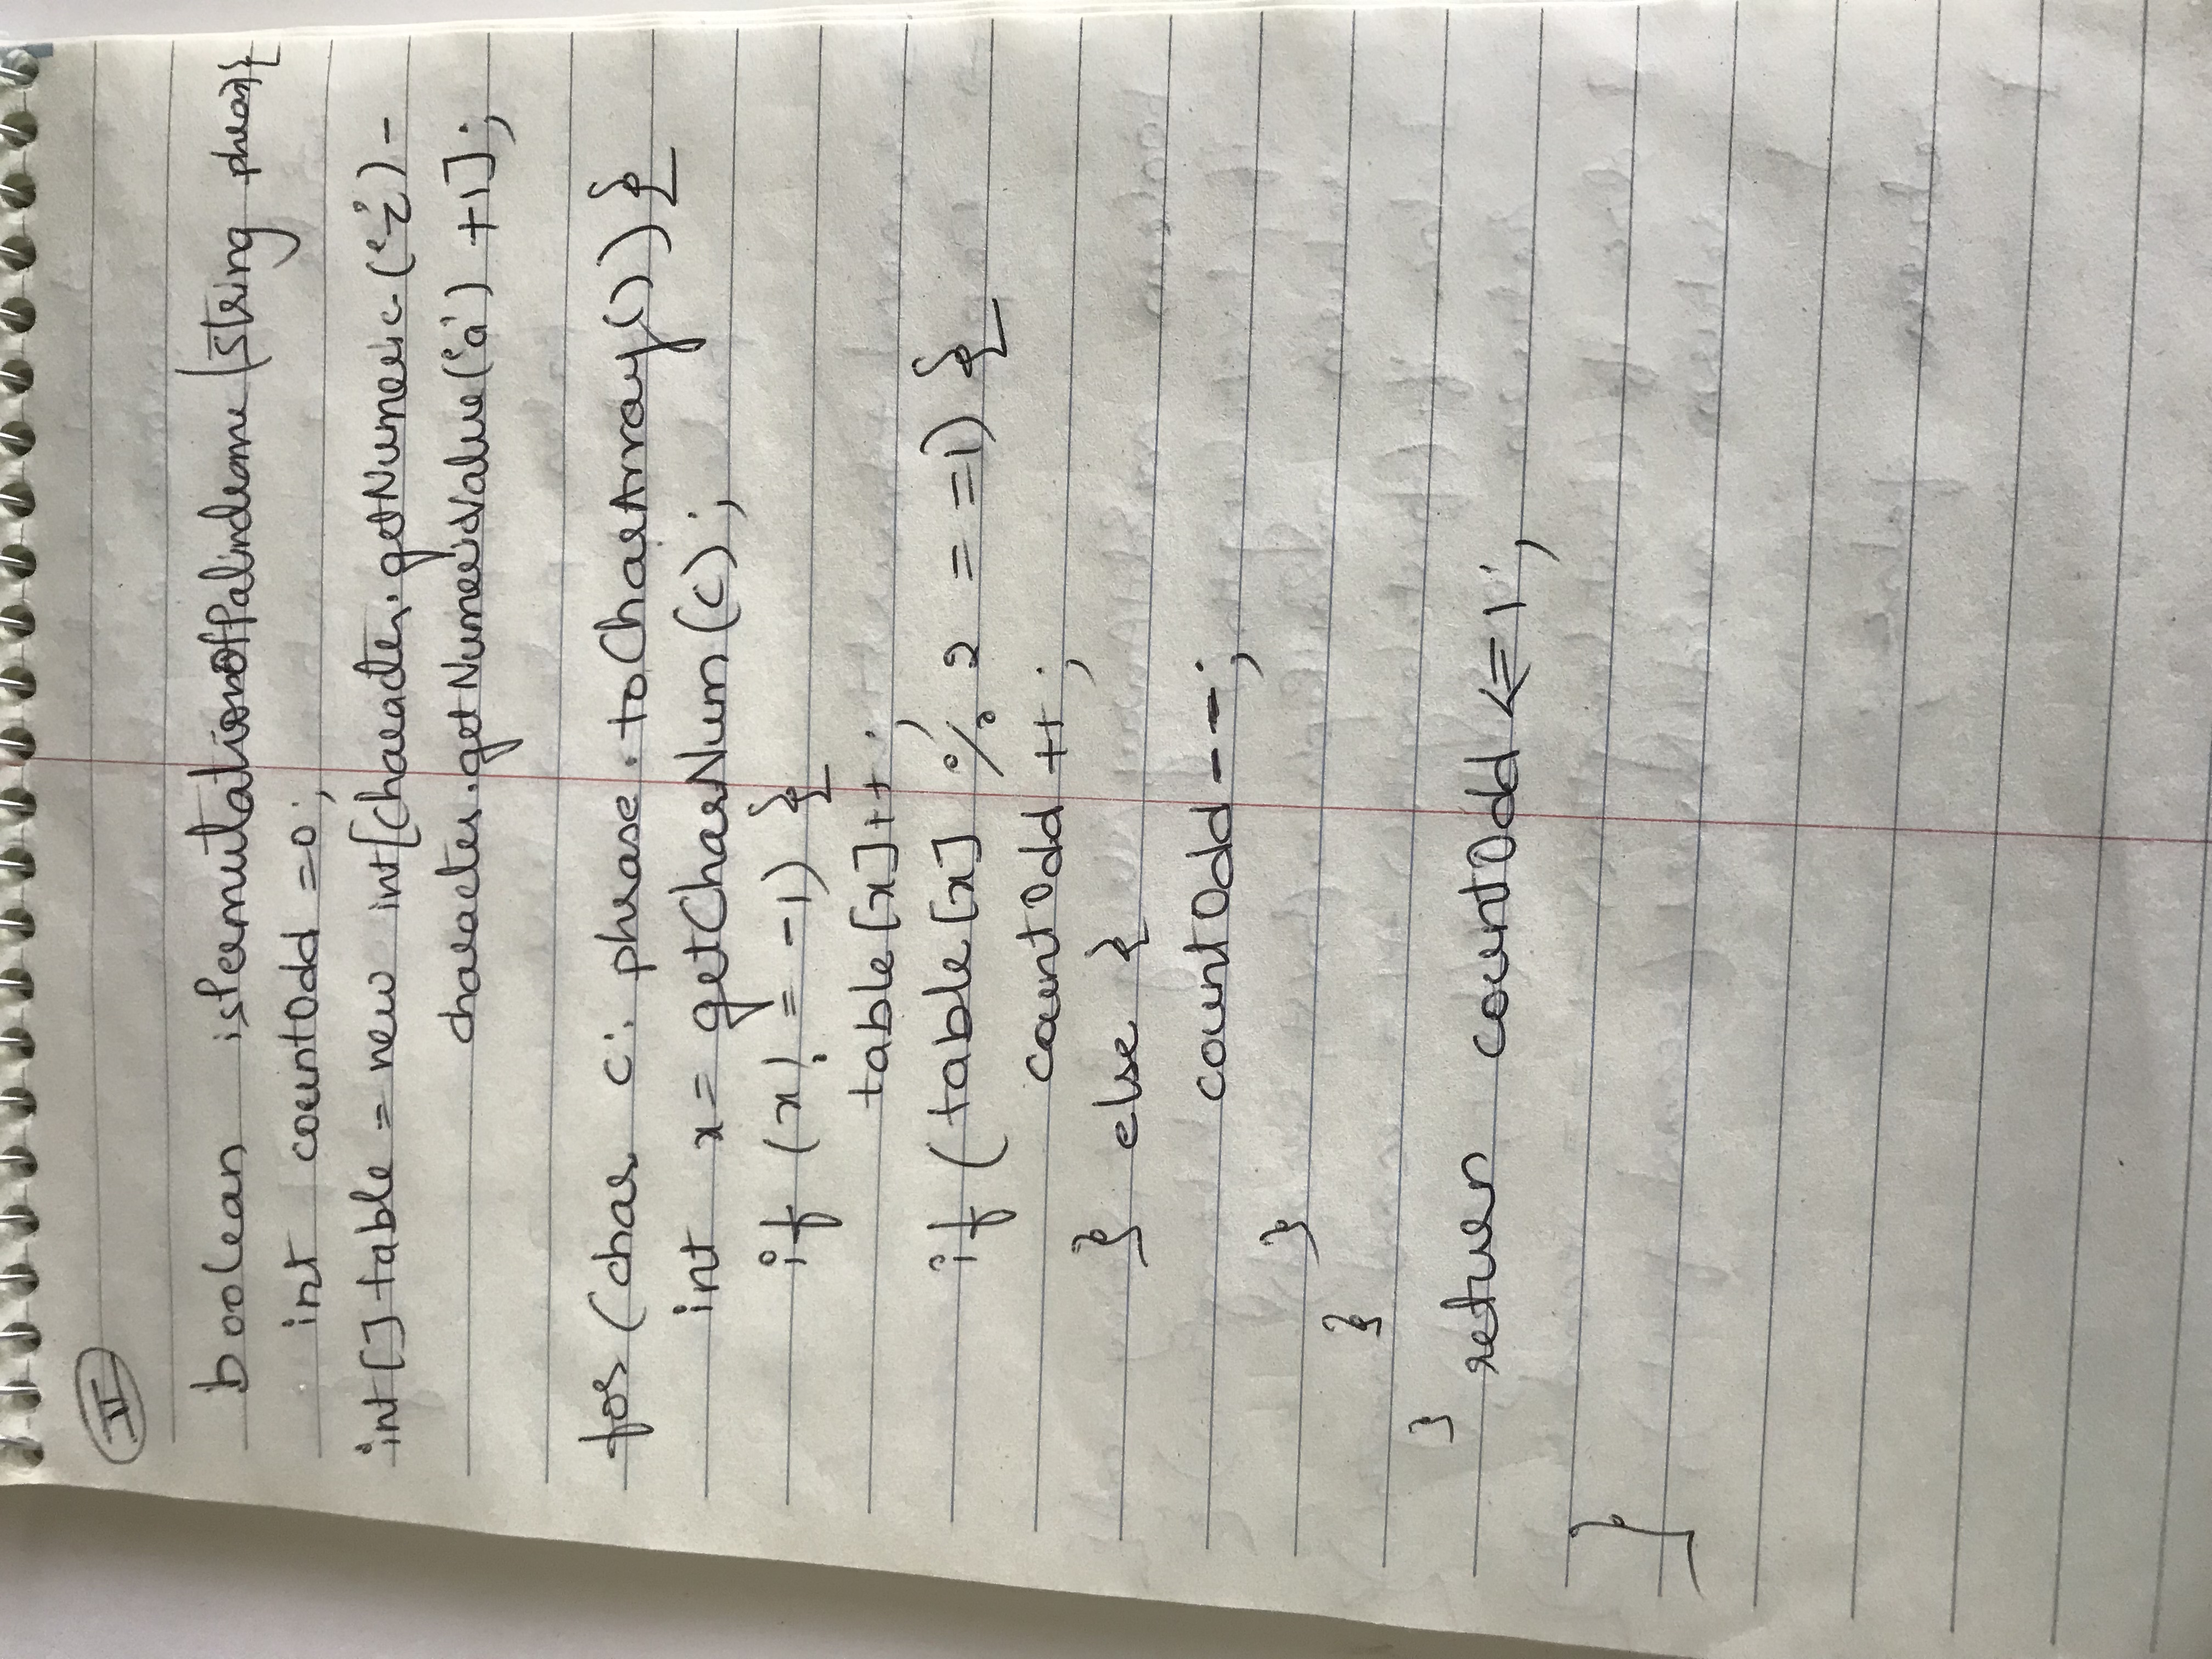 II
boolean isPermutationOfPalindrome (String phrase){
int countOdd =0;
int[] table = new int[Character.getNumeric('z') -
character.getNumericValue('a') +1];
for (char c: phrase.toCharArray()) {
int x= getCharNum(c);
if (x! = -1) {
table[x]++;
if (table[x] % 2 = =1) {
countOdd ++;
} else {
countOdd--;
}
}
}
return countOdd <=1;
}